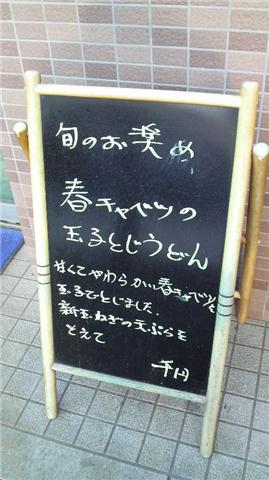 旬のお奨め
春キャベツの
玉子とじうどん
甘くてやわらかい春キャベツを
玉子でとじました。
新玉ねぎの天ぷらを
そえて
千円